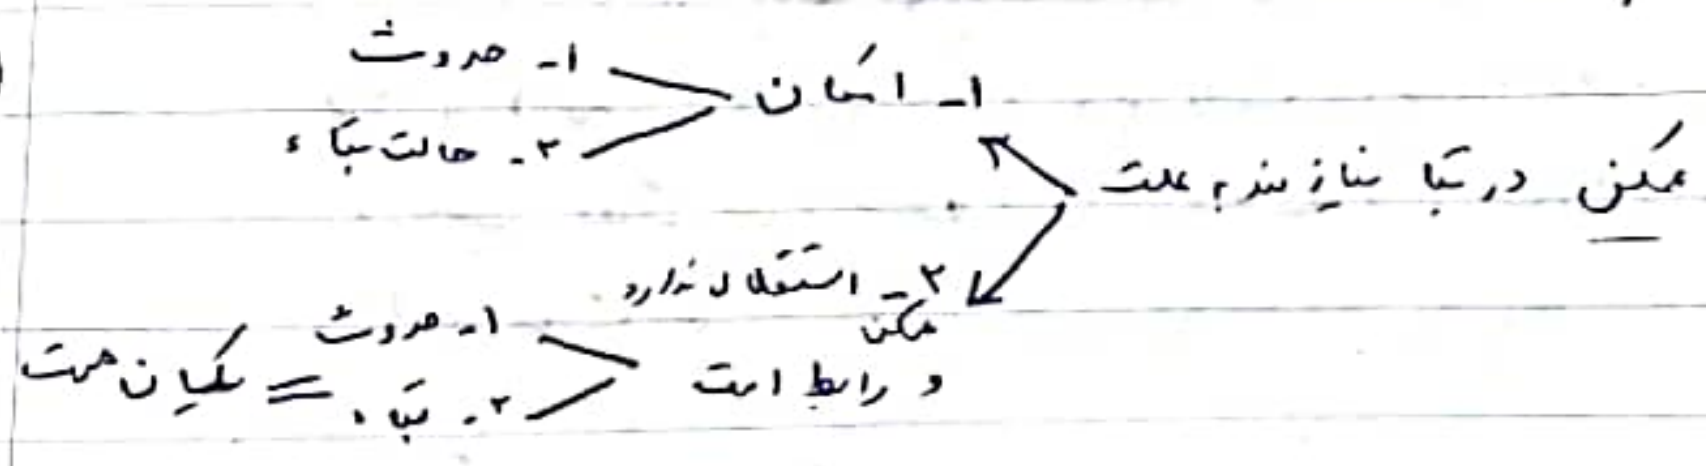 ممکن در بقا نیازمند به علت
۱- امکان
۱- حدوث
۲- حالت بقاء
۲- استقلال ندارد
ممکن
و رابط است
۱- حدوث
۲- بقاء = یکسان هست